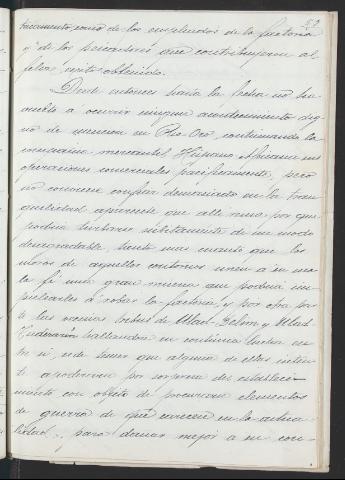 52
tacamento, como de los empleados de la factoria
y de los pescadores que contribuyeron al
feliz exito obtenido.
Desde entonces hasta la fecha no ha
vuelto a ocurrir ningun acontecimiento dig-
no de mencion en Rio-Oro, continuando la
compañia mercantil Hispano Africana sus
operaciones comerciales pacificamente, pero
no conviene confiar demasiado en la tran-
quilidad aparente que alli reina, por que
podria turbarse subitamente de un modo
desagradable, tanto mas cuanto que los
moros de aquellos contornos unen a su ma-
la fé una gran miseria que podria im-
pulsarles á robar la factoria, y por otra par-
te las vecinas tribus de Ulad-Delim y Ulad-
hallandose en continua lucha en-
tre si, es de temer que alguna de ellas inten-
te apoderarse por sorpresa del estableci-
miento con objeto de procurarse elementos
de guerra de que carecen en la actua-
lidad, para dañar mejor a su con-